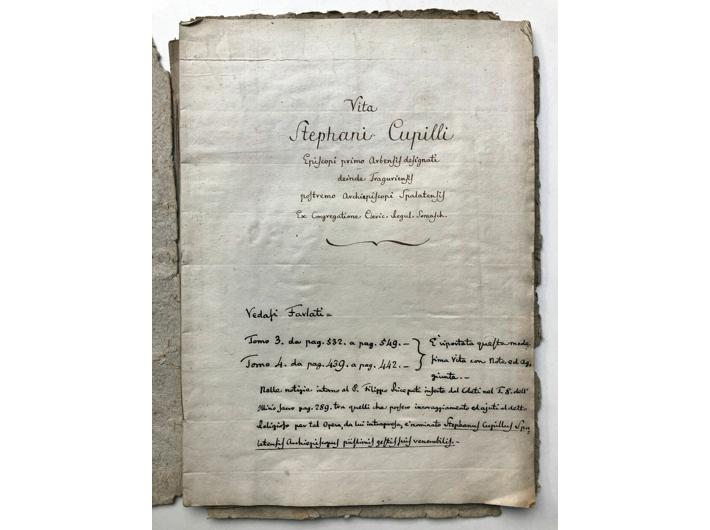 Vita
Stephani Cupilli
Episcopi primo Arbensis designati
deinde Traguriensis
postremo Archiepiscopi Spalatensis
Ex Congregatione Cleric. Regul. Somasch.
Vedasi Farlati =
Tomo 3. da pag. 532. a pag. 549. —
Tomo 4. da pag. 439. a pag. 442. —
È riportata questa mede
sima Vita con Note ed Ag
giunte. —
Nelle notizie intorno al P. Filippo Riceputi inserite dal Coleti nel T. 8. dell'
Illirio Sacro pag. 289. tra quelli che porsero incoraggiamento ed ajuti al dett.
Religioso per tal Opera, da lui intrapresa, è nominato Stephanus Cupillus Spa
latensis Archiepiscopus gestis suis venerabilis. —